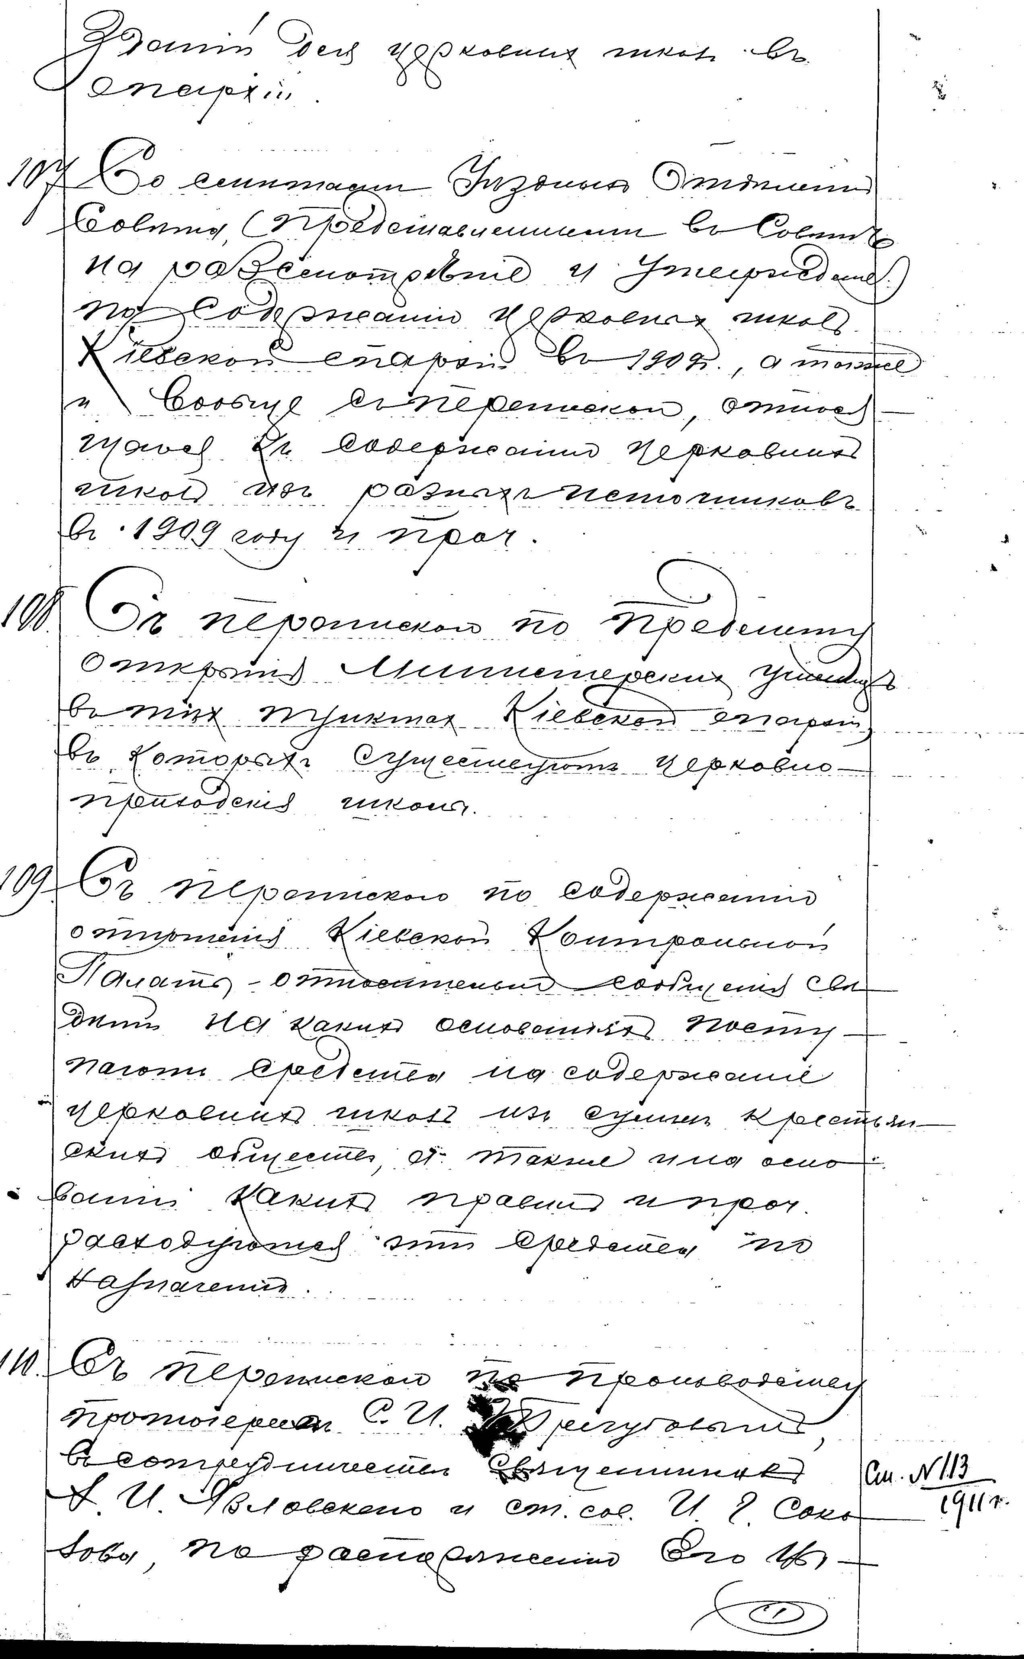 зданій для церковныхъ школъ въ
епархіи.
107 Со сметами Уѣздныхъ Отдѣленій
Совѣта, (представленными въ Совѣтъ
на разсмотрѣніе и утвержденіе)
по содержанію церковныхъ школъ
Кіевской епархіи въ 1909 г., а также
и вообще съ перепиской, относя-
щаюся къ содержанію церковныхъ
школъ изъ разныхъ источниковъ
въ 1909 году и проч.
108. Съ перепиской по предмету
открытія Министерскихъ училищъ
въ тѣхъ пунктахъ Кіевской епархіи,
въ которыхъ существуютъ церковно-
приходскія школы.
109 Съ перепиской по содержанію
отношенія Кіевской Контрольной
Палаты, относительно сообщенія свѣ-
дѣній на какихъ основаніяхъ посту-
паютъ средства на содержаніе
церковныхъ школъ изъ суммъ крестьян-
скихъ обществъ, а также и на осно-
ваніи какихъ правилъ и проч.
расходуются эти средства по
назначенію.
110. Съ перепиской по производству
протоіереемъ С. И.
въ сотрудничествѣ священника
А. И. и ст. сов. И. Соко-
лова, по распоряженію Его
См. № 113
1911 г.